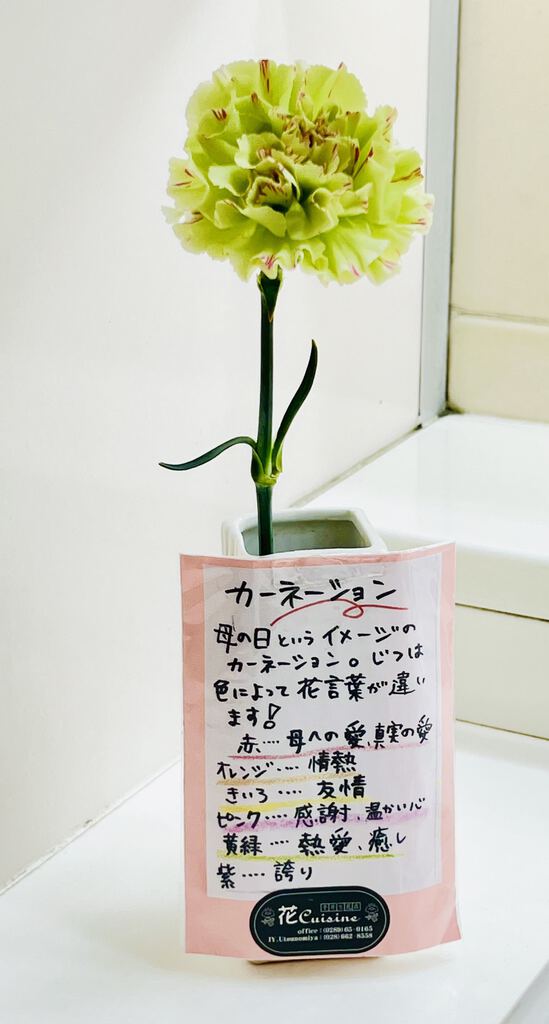 カーネーション
母の日というイメージの
カーネーション。じつは
色によって花言葉が違い
ます!
赤‥‥母への愛、真実の愛
オレンジ‥‥情熱
きいろ‥‥友情
ピンク‥‥感謝、温かい心
黄緑‥‥熱愛、癒し
紫‥‥誇り
花Cuisine
office : (0289) 65-0165
IY.Utsunomiya : (028) 662-8558